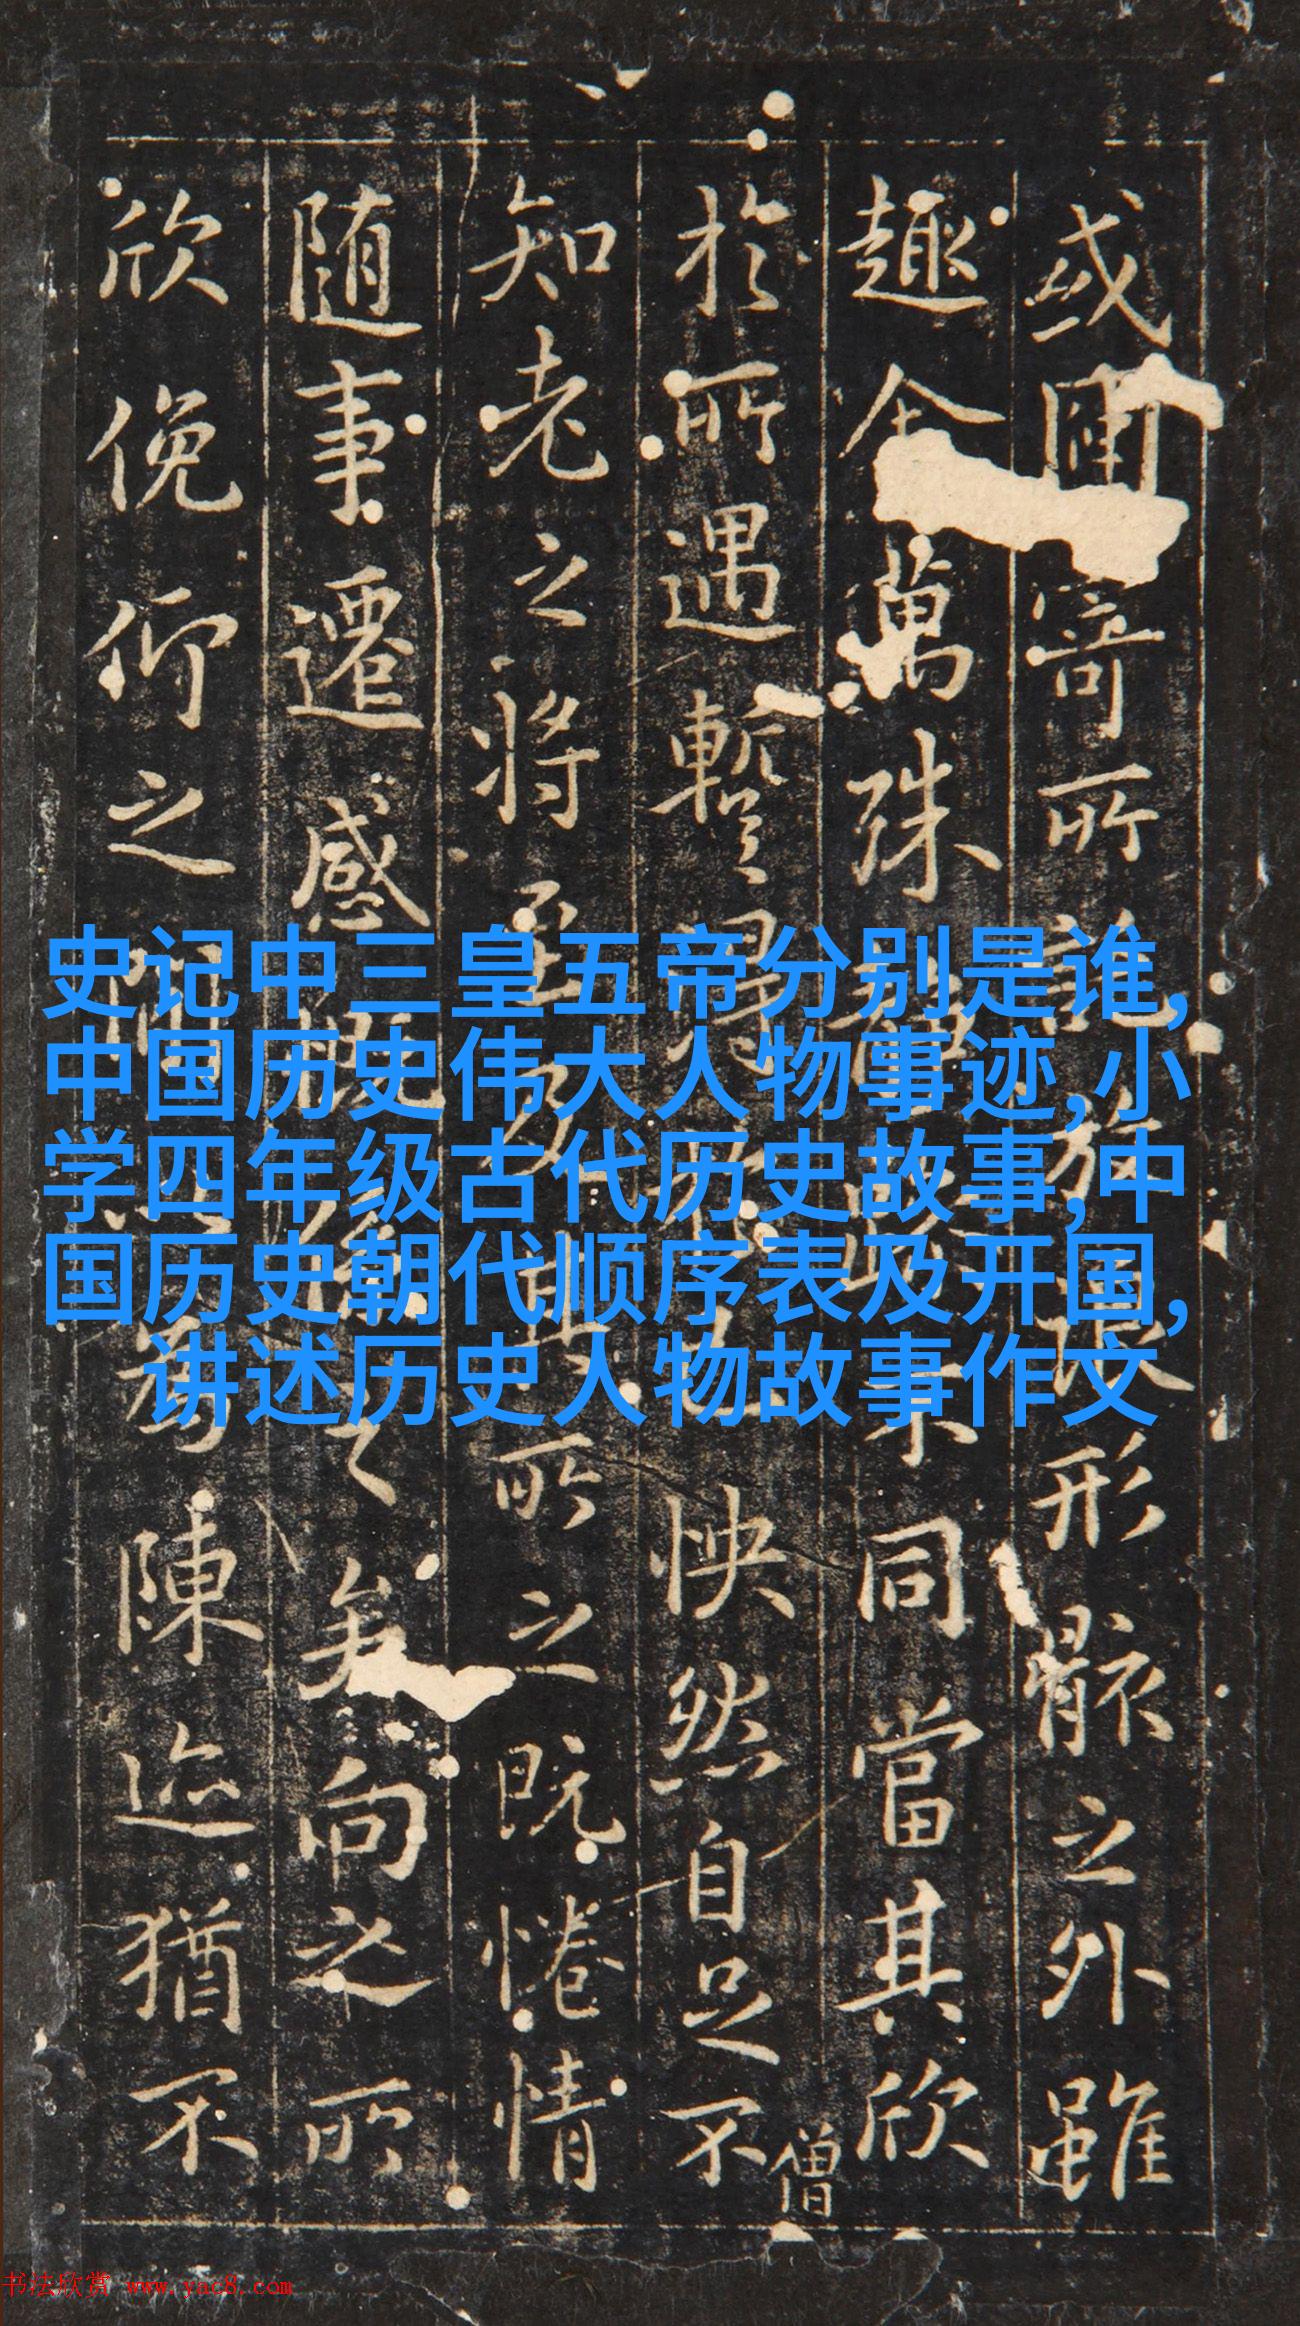 或因寄所託放浪形骸之外雖
趣舍萬殊静躁不同當其欣
於所遇暫得於己怏然自足不
僧
知老之將至及其所之既惓情
随事遷感慨係之矣向之所
欣俛仰之間以為陳迹猶不
史记中三皇五帝分别是谁,
中国历史伟大人物事迹,小
学四年级古代历史故事,中
国历史朝代顺序表及开国,
讲述历史人物故事作文
书法欣赏 www.yac8.com